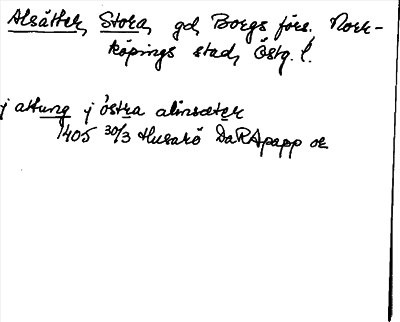 Alsätter, Stora, gd, Borgs förs. Norr-
köpings stad, Östg. l.
j attung j östra alinsæter
1405 30/3 Husarö DaRApapp or